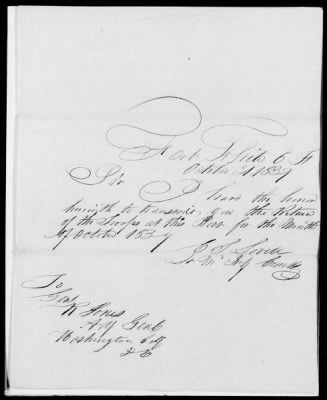 Fort White E F
October 31 1839
Sir I have the honor
herewith to transmit you the Return
of the Troops at this Post for the Month
of October 1839
To
Genl
R Jones
Adj Genl
Washington City
D C